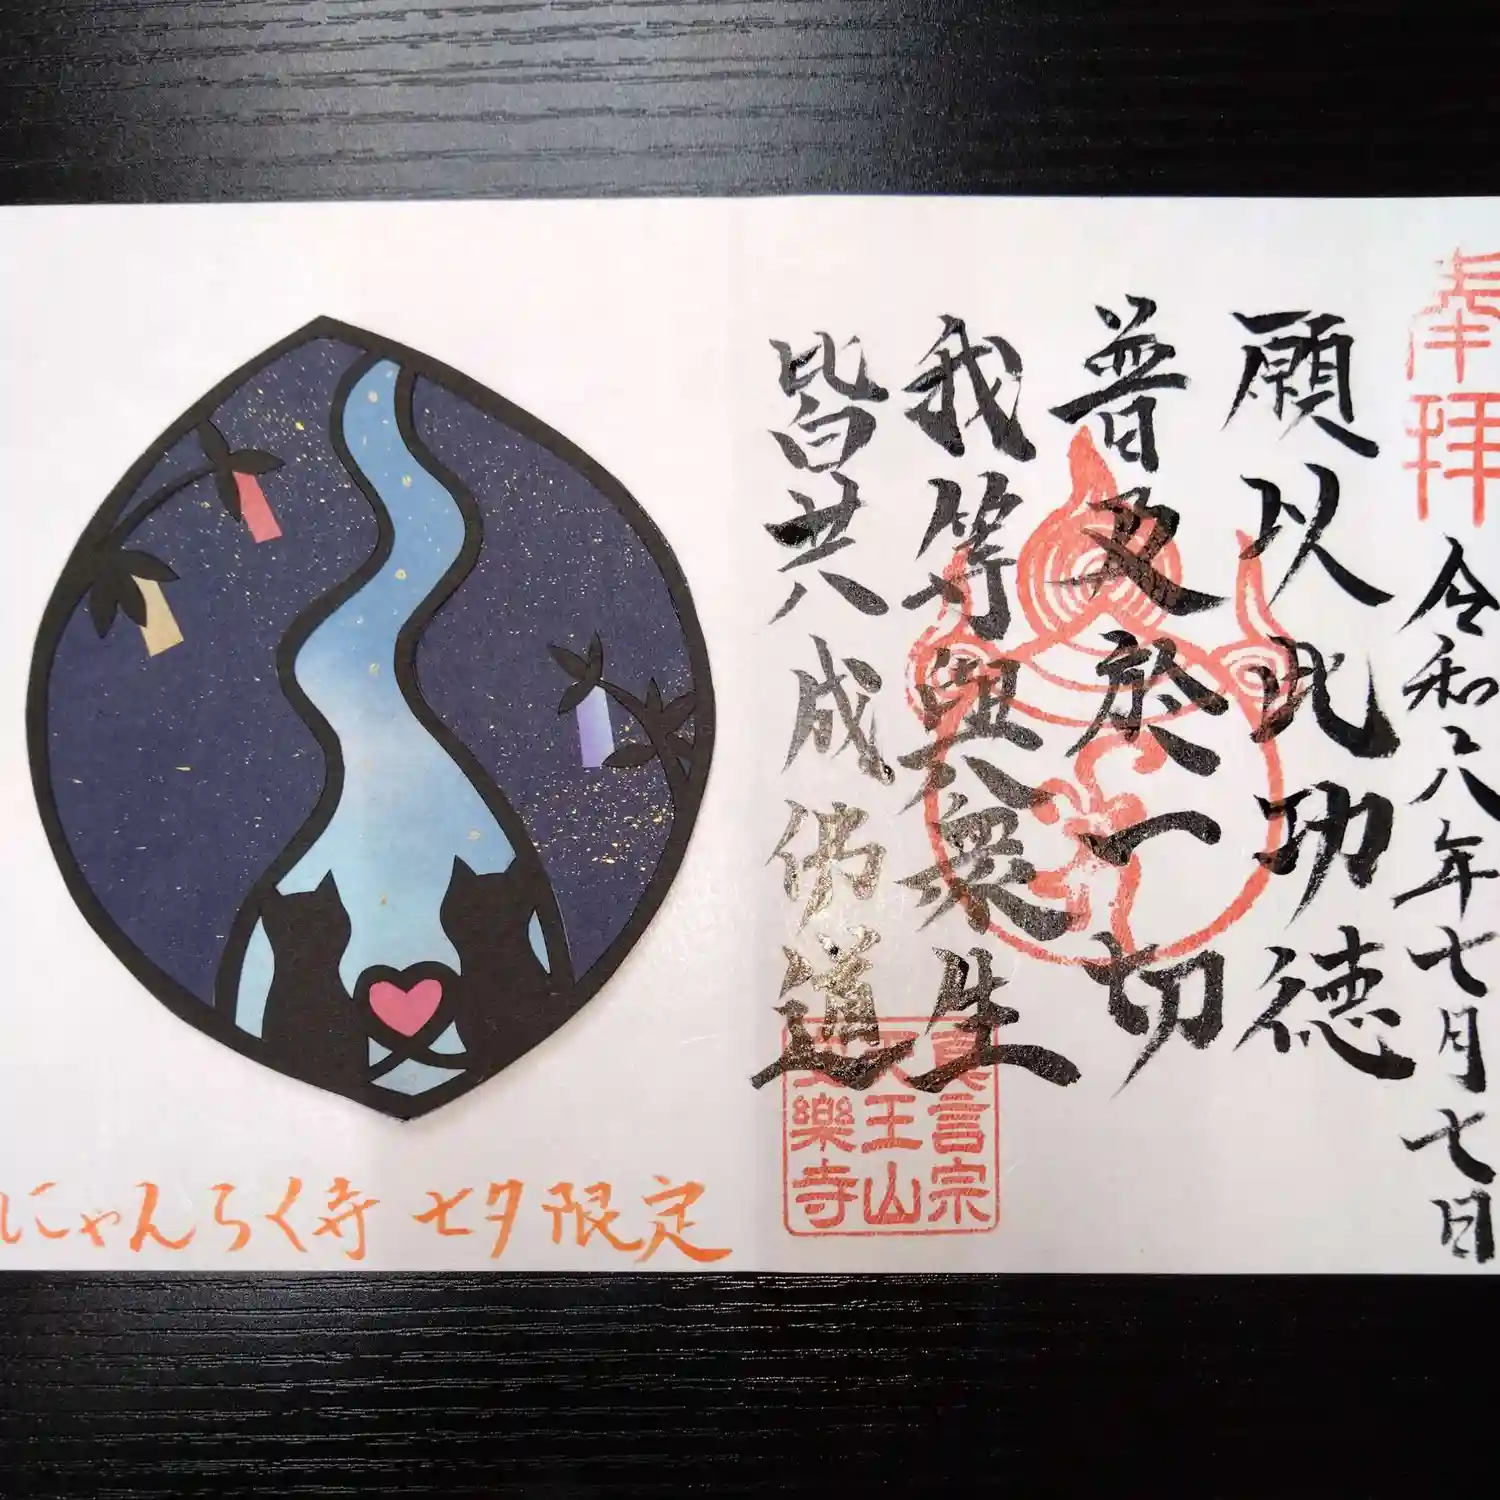 奉拝
令和八年七月七日
願以此功徳
普及於一切
我等與衆生
皆共成佛道
真言宗
天王山
安樂寺
にゃんらく寺 七夕限定